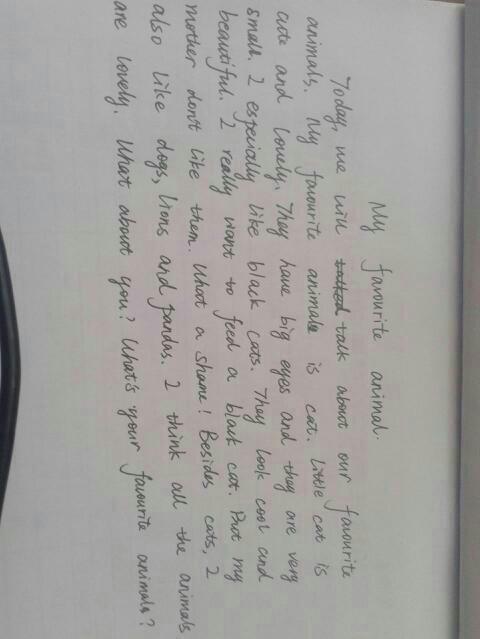 My favourite animal.
Today, we will talk about our favourite
animals. My favourite animal is cat. Little cat is
cute and lovely. They have big eyes and they are very
small. I especially like black cats. They look cool and
beautiful. I really want to feed a black cat. But my
mother don't like them. What a shame! Besides cats, I
also like dogs, lions and pandas. I think all the animals
are lovely. What about you? What's your favourite animals?